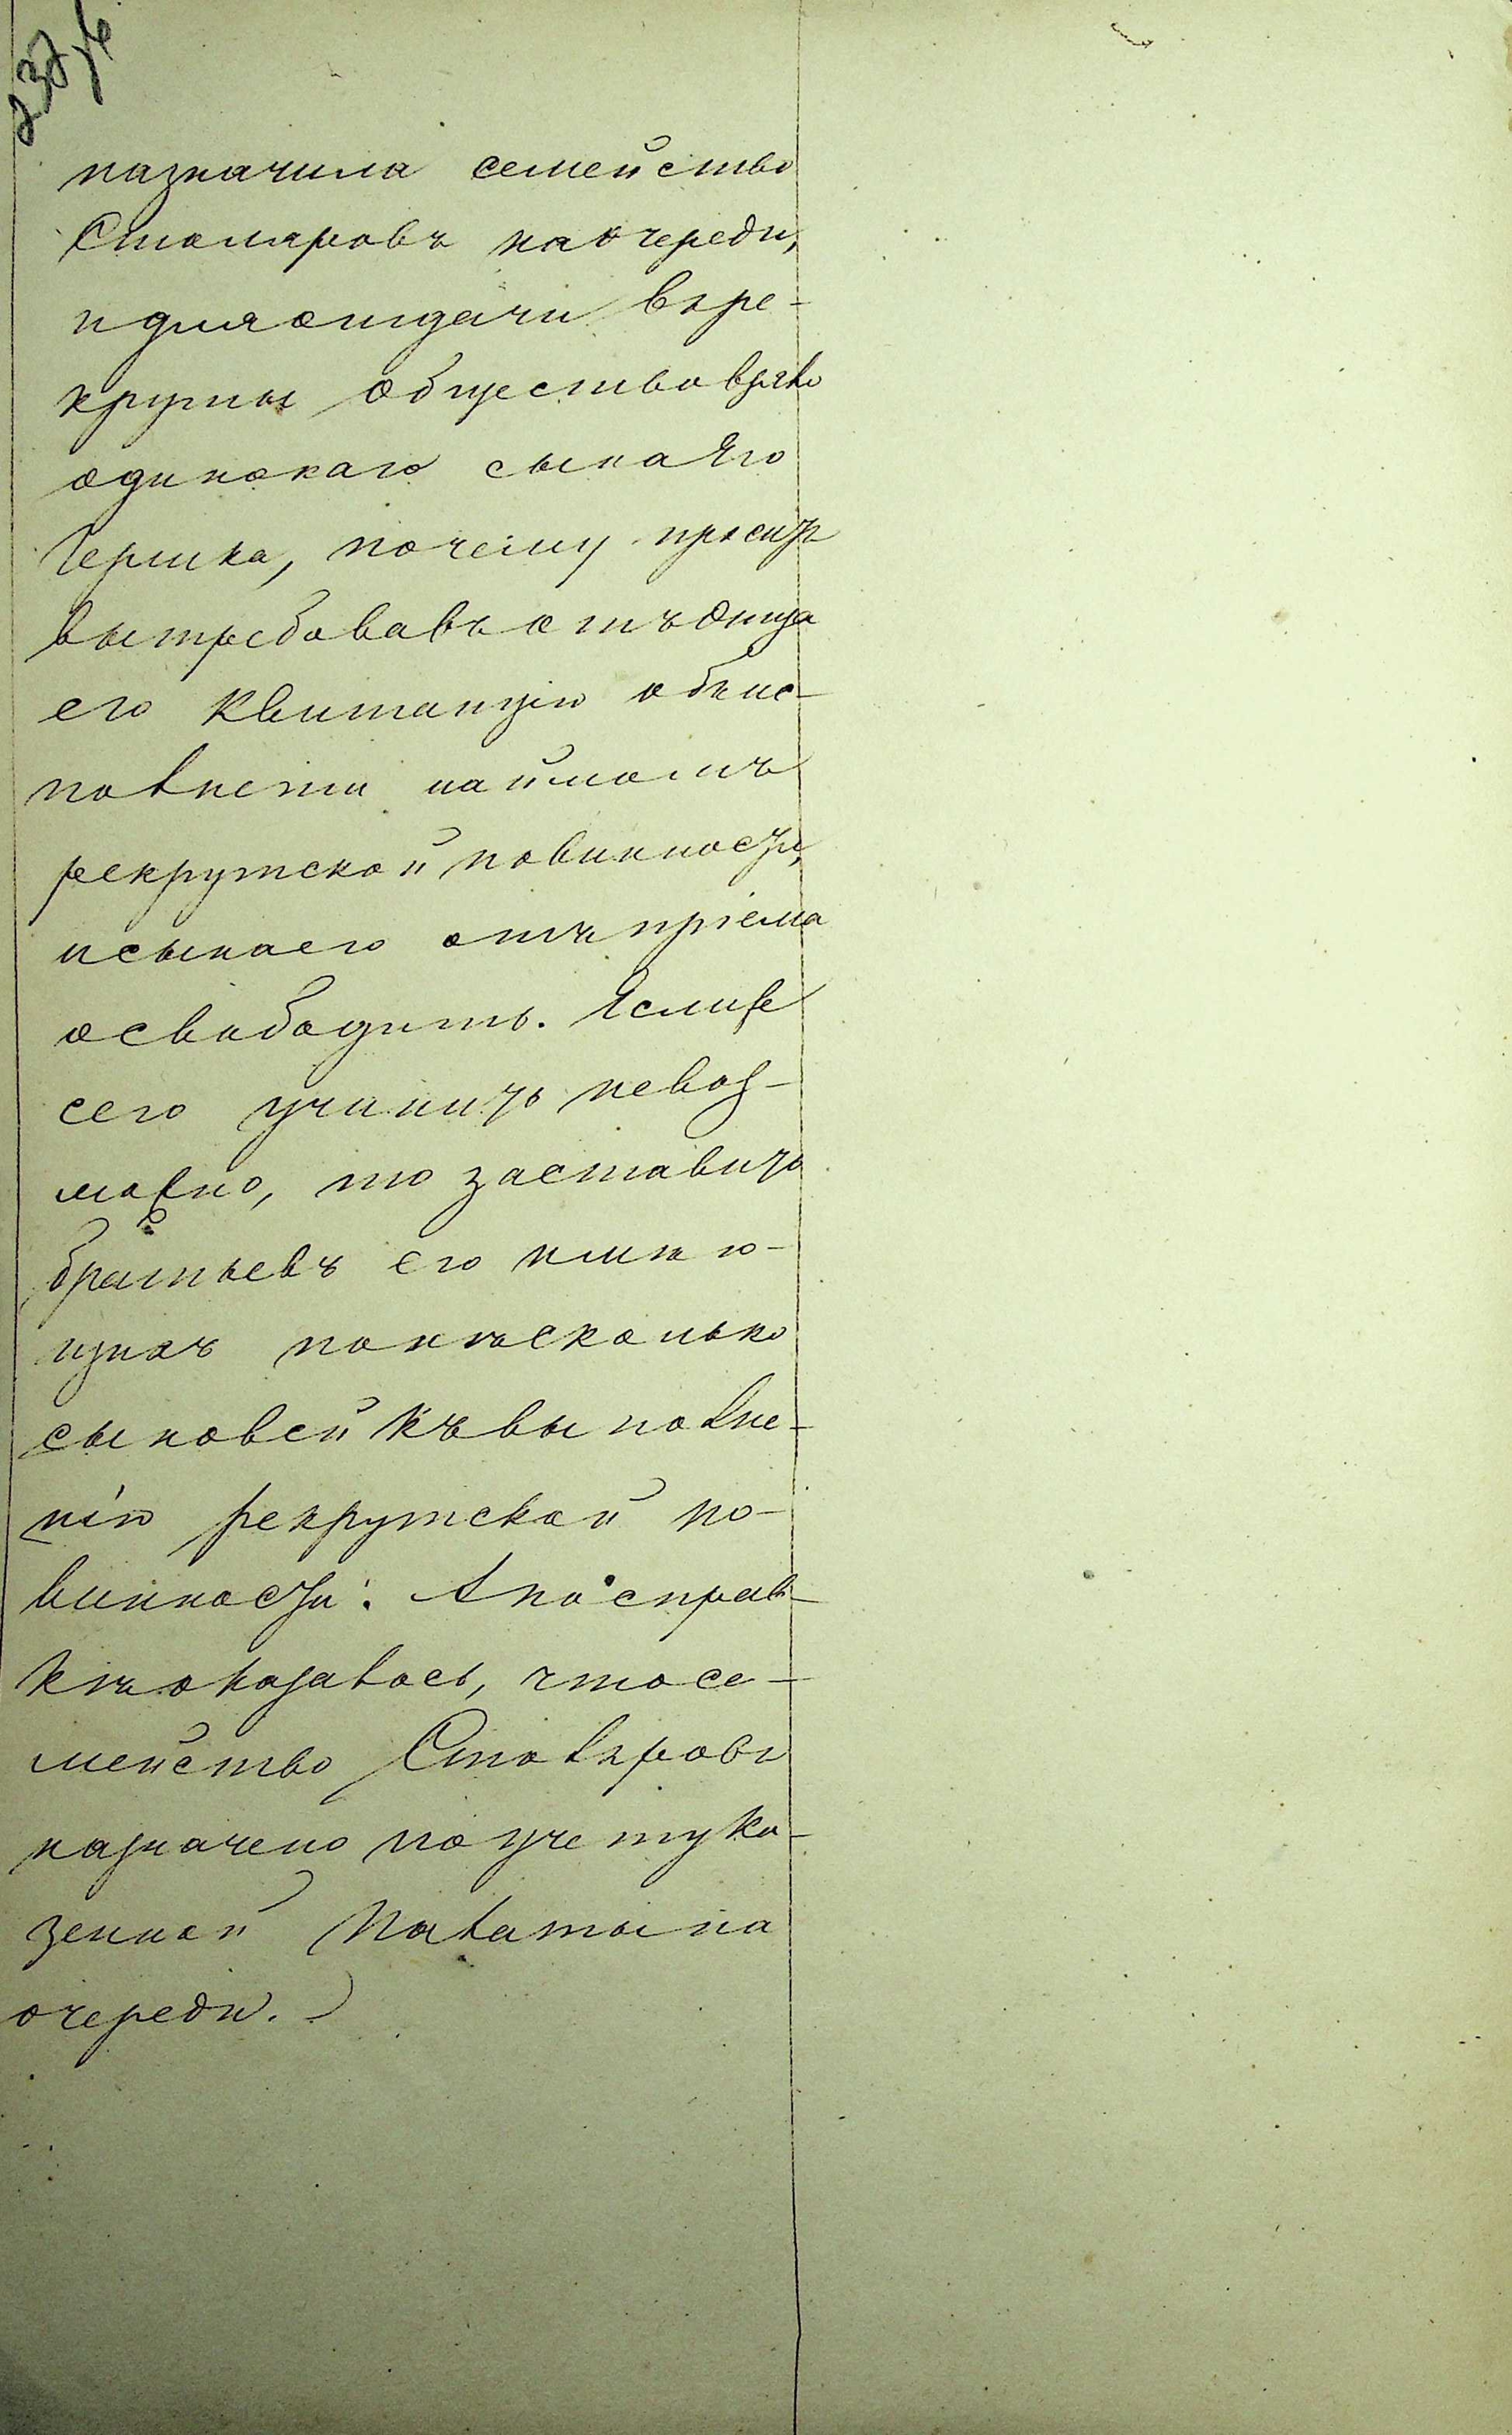 237 об
назначила семейство
Столяровъ на очереди,
и для отдачи въ ре-
круты общество взяло
одинокаго сына Его
Гершка, почему проситъ
вытребовавъ отъ Отца
его Квитанцію объ ис-
полненіи наймомъ
рекрутской повинности,
и сына его отъ пріема
освободить. Если же
сего учинить невоз-
можно, то заставить
братьевъ его имѣю-
щихъ по нѣсколько
сыновей къ выполне-
нію рекрутской по-
винности. А по справ-
кѣ оказалось, что се-
мейство Столяровъ
назначено по учету Ка-
зенной Палаты на
очереди.